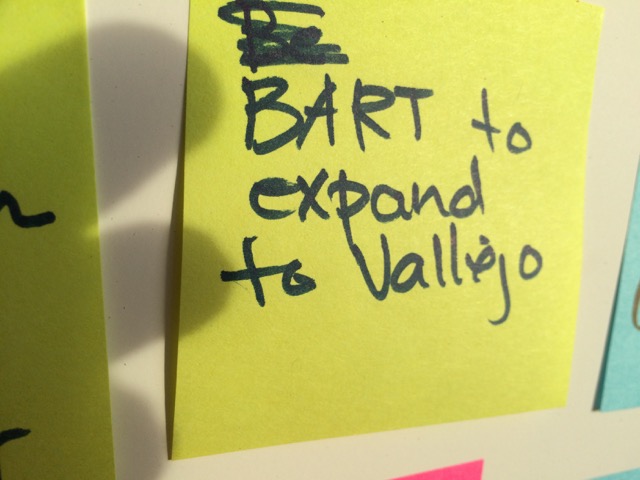 BART to
expand
to Vallejo